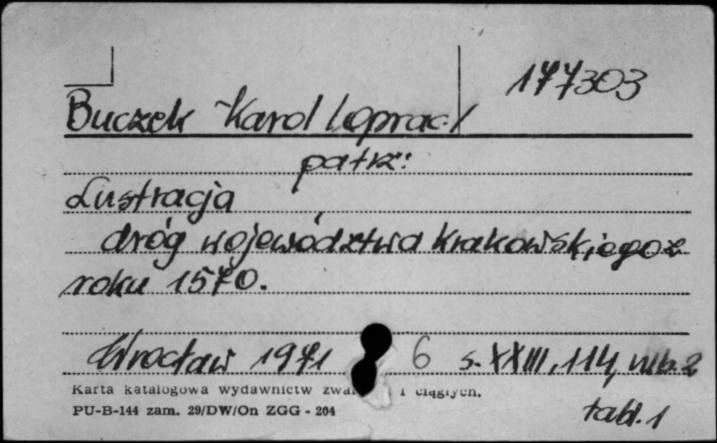 177303
Buczek Karol /oprac./
patrz:
Lustracja
dróg województwa krakowskiego z
roku 1570.
Wrocław 1971 6 s. XXIII, 114, nlb. 2
tabl. 1
Karta katalogowa wydawnictw i ciągłych.
PU-B-144 zam. 29/DW/On ZGG - 204